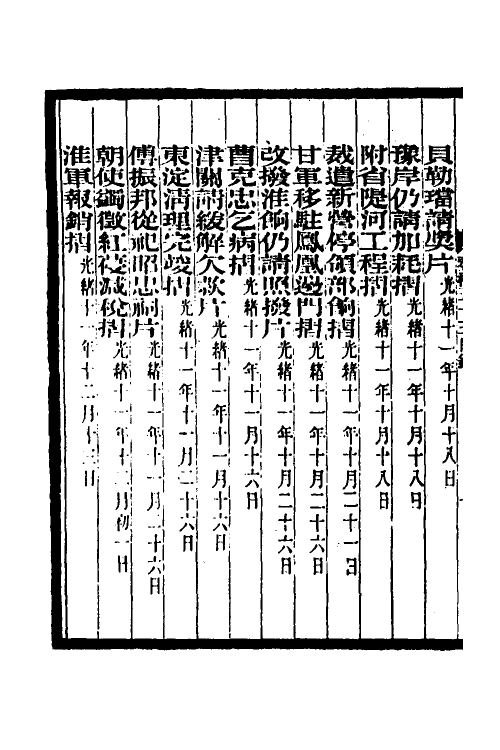 貝勒璫請獎片光緒十一年十月十八日
豫岸仍請加耗摺光緒十一年十月十八日
附省隄河工程摺光緒十一年十月十八日
裁遣新營停領部餉摺光緒十一年十月二十一日
甘軍移駐鳳凰邊門摺光緒十一年十月二十六日
改撥淮餉仍請照撥片光緒十一年十月二十六日
曹克忠乞病摺光緒十一年十一月十六日
津關請緩解欠款片光緒十一年十一月十六日
東淀清理完竣摺光緒十一年十一月二十六日
傅振邦從祀昭忠祠片光緒十一年十一月二十六日
朝使蠲徵紅稅減從摺光緒十一年十二月初一日
淮軍報銷摺光緒十一年十二月十三日